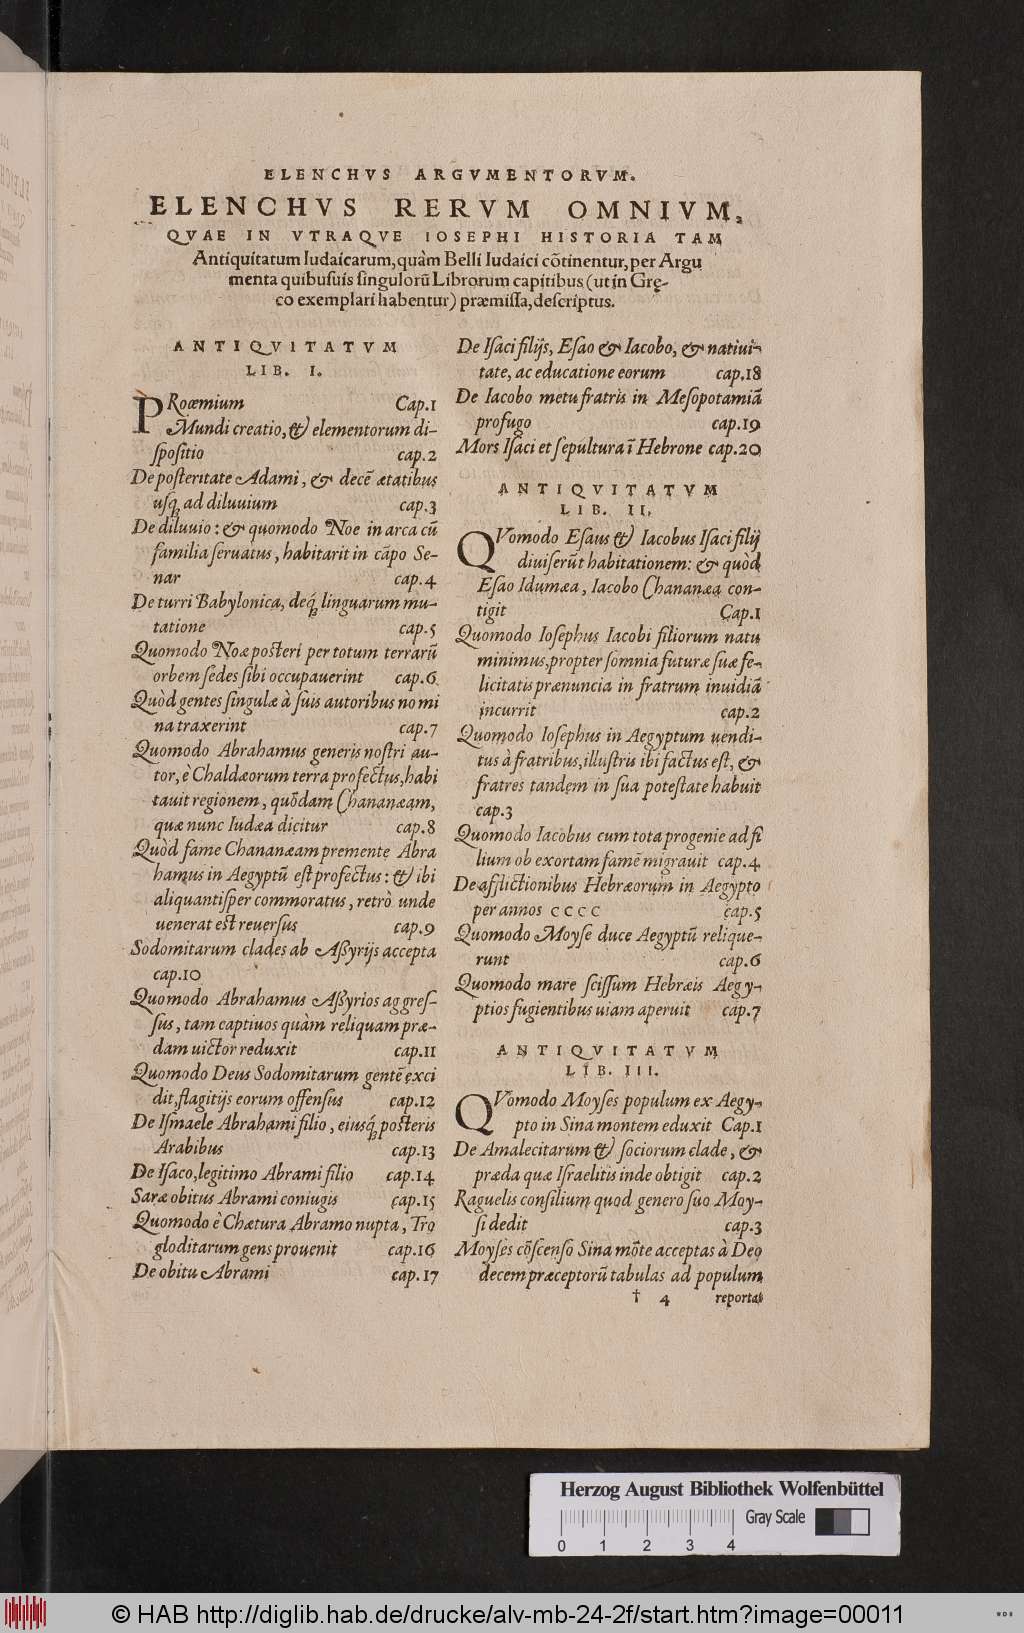 ELENCHVS ARGVMENTORVM.
ELENCHVS RERVM OMNIVM,
QVAE IN VTRAQVE IOSEPHI HISTORIA TAM
Antiquitatum Iudaicarum, quàm Belli Iudaici cõtinentur, per Argu
menta quibusuis singulorũ Librorum capitibus (ut in Gręco
co exemplari habentur) præmissa, descriptus.
ANTIQVITATVM
LIB. I.
PRoœmium Cap.1
Mundi creatio, & elementorum di-
spositio cap.2
De posteritate Adami, & decẽ ætatibus
usq; ad diluuium cap.3
De diluuio: & quomodo Noe in arca cũ
familia seruatus, habitarit in cãpo Se-
nar cap.4
De turri Babylonica, deq́; linguarum mu-
tatione cap.5
Quomodo Noæ posteri per totum terrarũ
orbem sedes sibi occupauerint cap.6
Quòd gentes singulæ à suis autoribus nomi
na traxerint cap.7
Quomodo Abrahamus generis nostri au-
tor, è Chaldæorum terra profectus, habi
tauit regionem, quõdam Chananæam,
quæ nunc Iudæa dicitur cap.8
Quòd fame Chananæam premente Abra
hamus in Aegyptũ est profectus: & ibi
aliquantisper commoratus, retrò unde
uenerat est reuersus cap.9
Sodomitarum clades ab Aßyrijs accepta
cap.10
Quomodo Abrahamus Aßyrios aggres-
sus, tam captiuos quàm reliquam præ-
dam uictor reduxit cap.11
Quomodo Deus Sodomitarum gentẽ exci
dit, flagitijs eorum offensus cap.12
De Ismaele Abrahami filio, eiusq́; posteris
Arabibus cap.13
De Isaco, legitimo Abrami filio cap.14
Saræ obitus Abrami coniugis cap.15
Quomodo è Chætura Abramo nupta, Tro
gloditarum gens prouenit cap.16
De obitu Abrami cap.17
De Isaci filijs, Esao & Iacobo, & natiui-
tate, ac educatione eorum cap.18
De Iacobo metu fratris in Mesopotamiã
profugo cap.19
Mors Isaci et sepultura ĩ Hebrone cap.20
ANTIQVITATVM
LIB. II.
QVomodo Esaus & Iacobus Isaci filij
diuiserũt habitationem: & quòd
Esao Idumæa, Iacobo Chananæa con-
tigit Cap.1
Quomodo Iosephus Iacobi filiorum natu
minimus, propter somnia futuræ suæ fe-
licitatis prænuncia in fratrum inuidiã
incurrit cap.2
Quomodo Iosephus in Aegyptum uendi-
tus à fratribus, illustris ibi factus est, &
fratres tandem in sua potestate habuit
cap.3
Quomodo Iacobus cum tota progenie ad fi
lium ob exortam famẽ migrauit cap.4
De afflictionibus Hebræorum in Aegypto
per annos CCCC cap.5
Quomodo Moyse duce Aegyptũ relique-
runt cap.6
Quomodo mare scissum Hebræis Aegy-
ptios fugientibus uiam aperuit cap.7
ANTIQVITATVM
LIB. III.
QVomodo Moyses populum ex Aegy-
pto in Sina montem eduxit Cap.1
De Amalecitarum & sociorum clade, &
præda quæ Israelitis inde obtigit cap.2
Raguelis consilium quod genero suo Moy-
si dedit cap.3
Moyses cõscenso Sina mõte acceptas à Deo
decem præceptorũ tabulas ad populum
† 4 reporta-
Herzog August Bibliothek Wolfenbüttel
Gray Scale
0 1 2 3 4
© HAB http://diglib.hab.de/drucke/alv-mb-24-2f/start.htm?image=00011